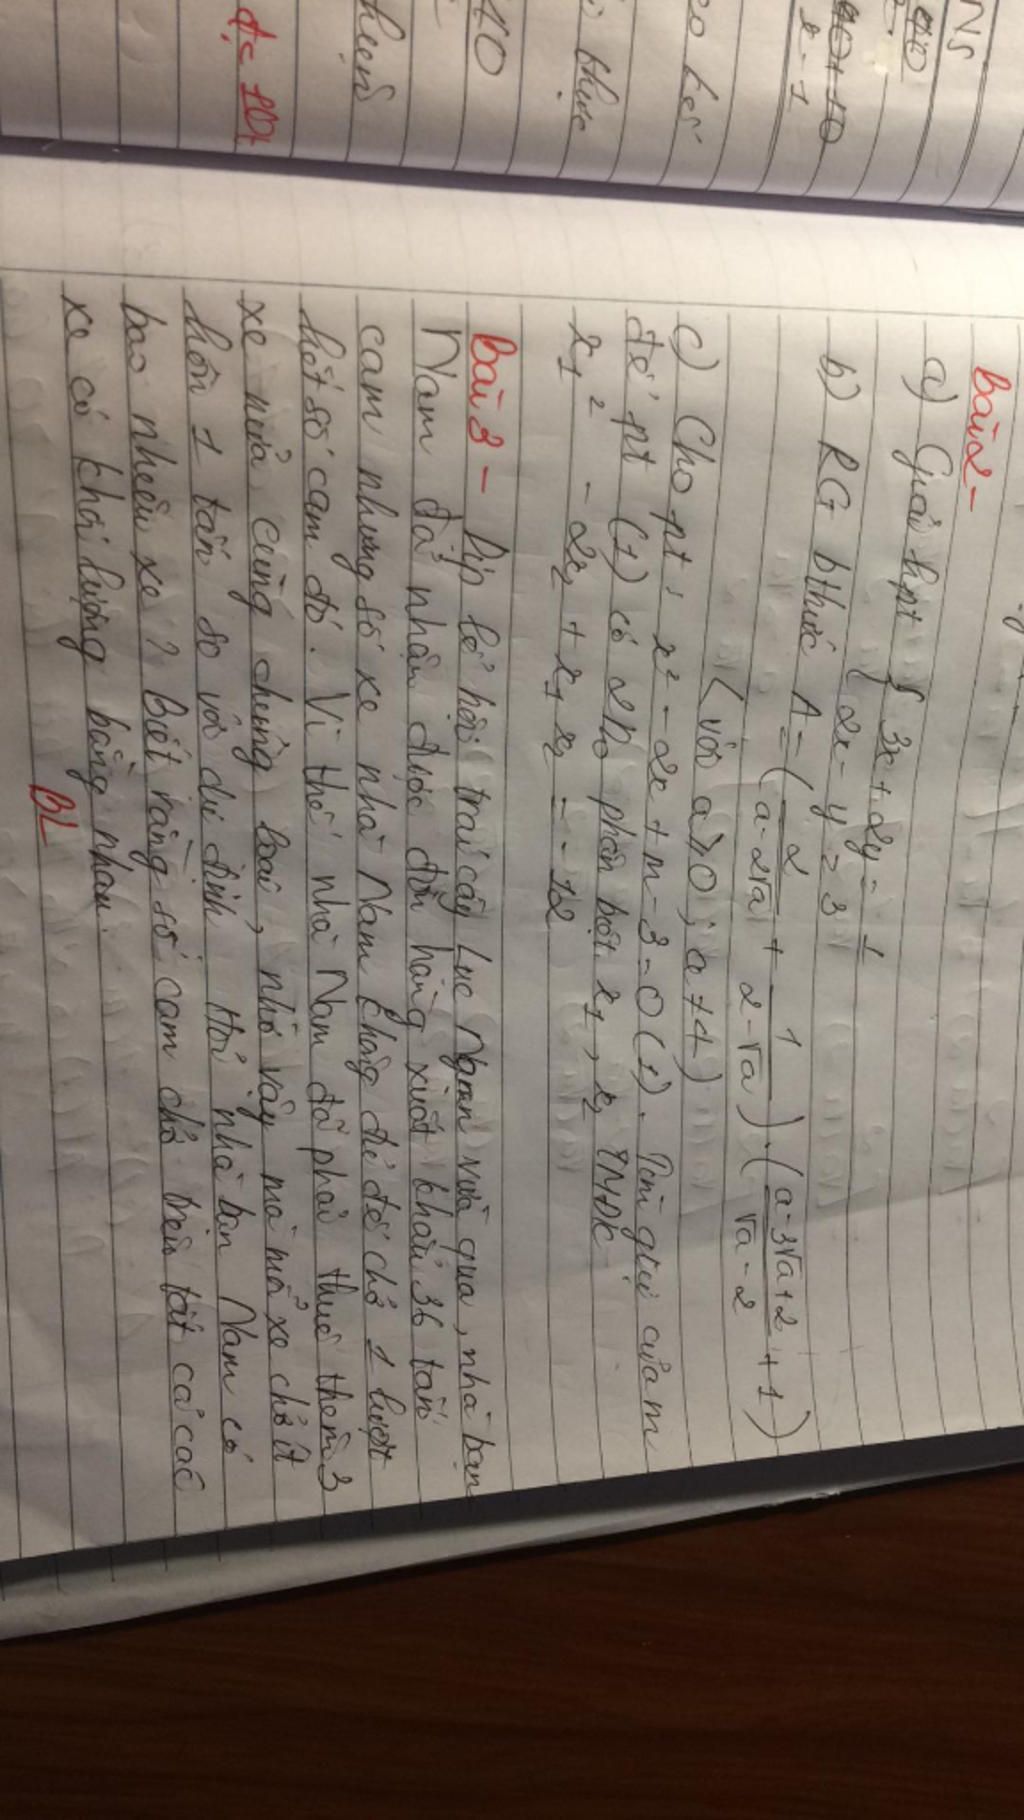 NS
x-1
bài 2-
a) Giải hpt { 3x + 2y = 1
2x - y = 3
b) RG bthức A = ( 2/(a-2√a) + 1/(2-√a) ) . ( (a-3√a+2)/(√a-2) + 1 )
(với a>0; a≠4)
c) Cho pt: x² - 2x + m - 3 = 0 (1). Tìm gtrị của m
để pt (1) có 2No phân biệt x₁, x₂ TMĐK
x₁² - 2x₂ + x₁x₂ = -12
bài 3 - Dịp lễ hội trái cây Lục Ngạn vừa qua, nhà bạn
Nam đã nhận được đơn hàng xuất khẩu 36 tấn
cam nhưng số xe nhà Nam không đủ để chở 1 lượt
hết số cam đó. Vì thế nhà Nam đã phải thuê thêm 3
xe nữa cùng chủng loại, nhờ vậy mà mỗi xe chở ít
hơn 1 tấn so với dự định. Hỏi nhà bạn Nam có
bao nhiêu xe? Biết rằng số cam chở trên tất cả các
xe có khối lượng bằng nhau.
BL